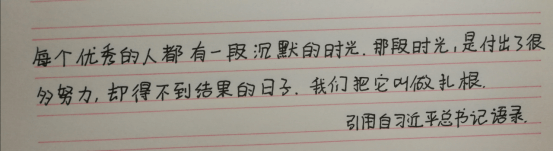 每个优秀的人都有一段沉默的时光.那段时光,是付出了很
多努力,却得不到结果的日子.我们把它叫做扎根.
引用自习近平总书记语录.